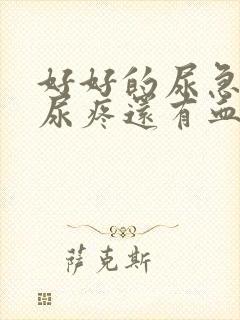 好好的尿急
尿疼還有血
萨克斯